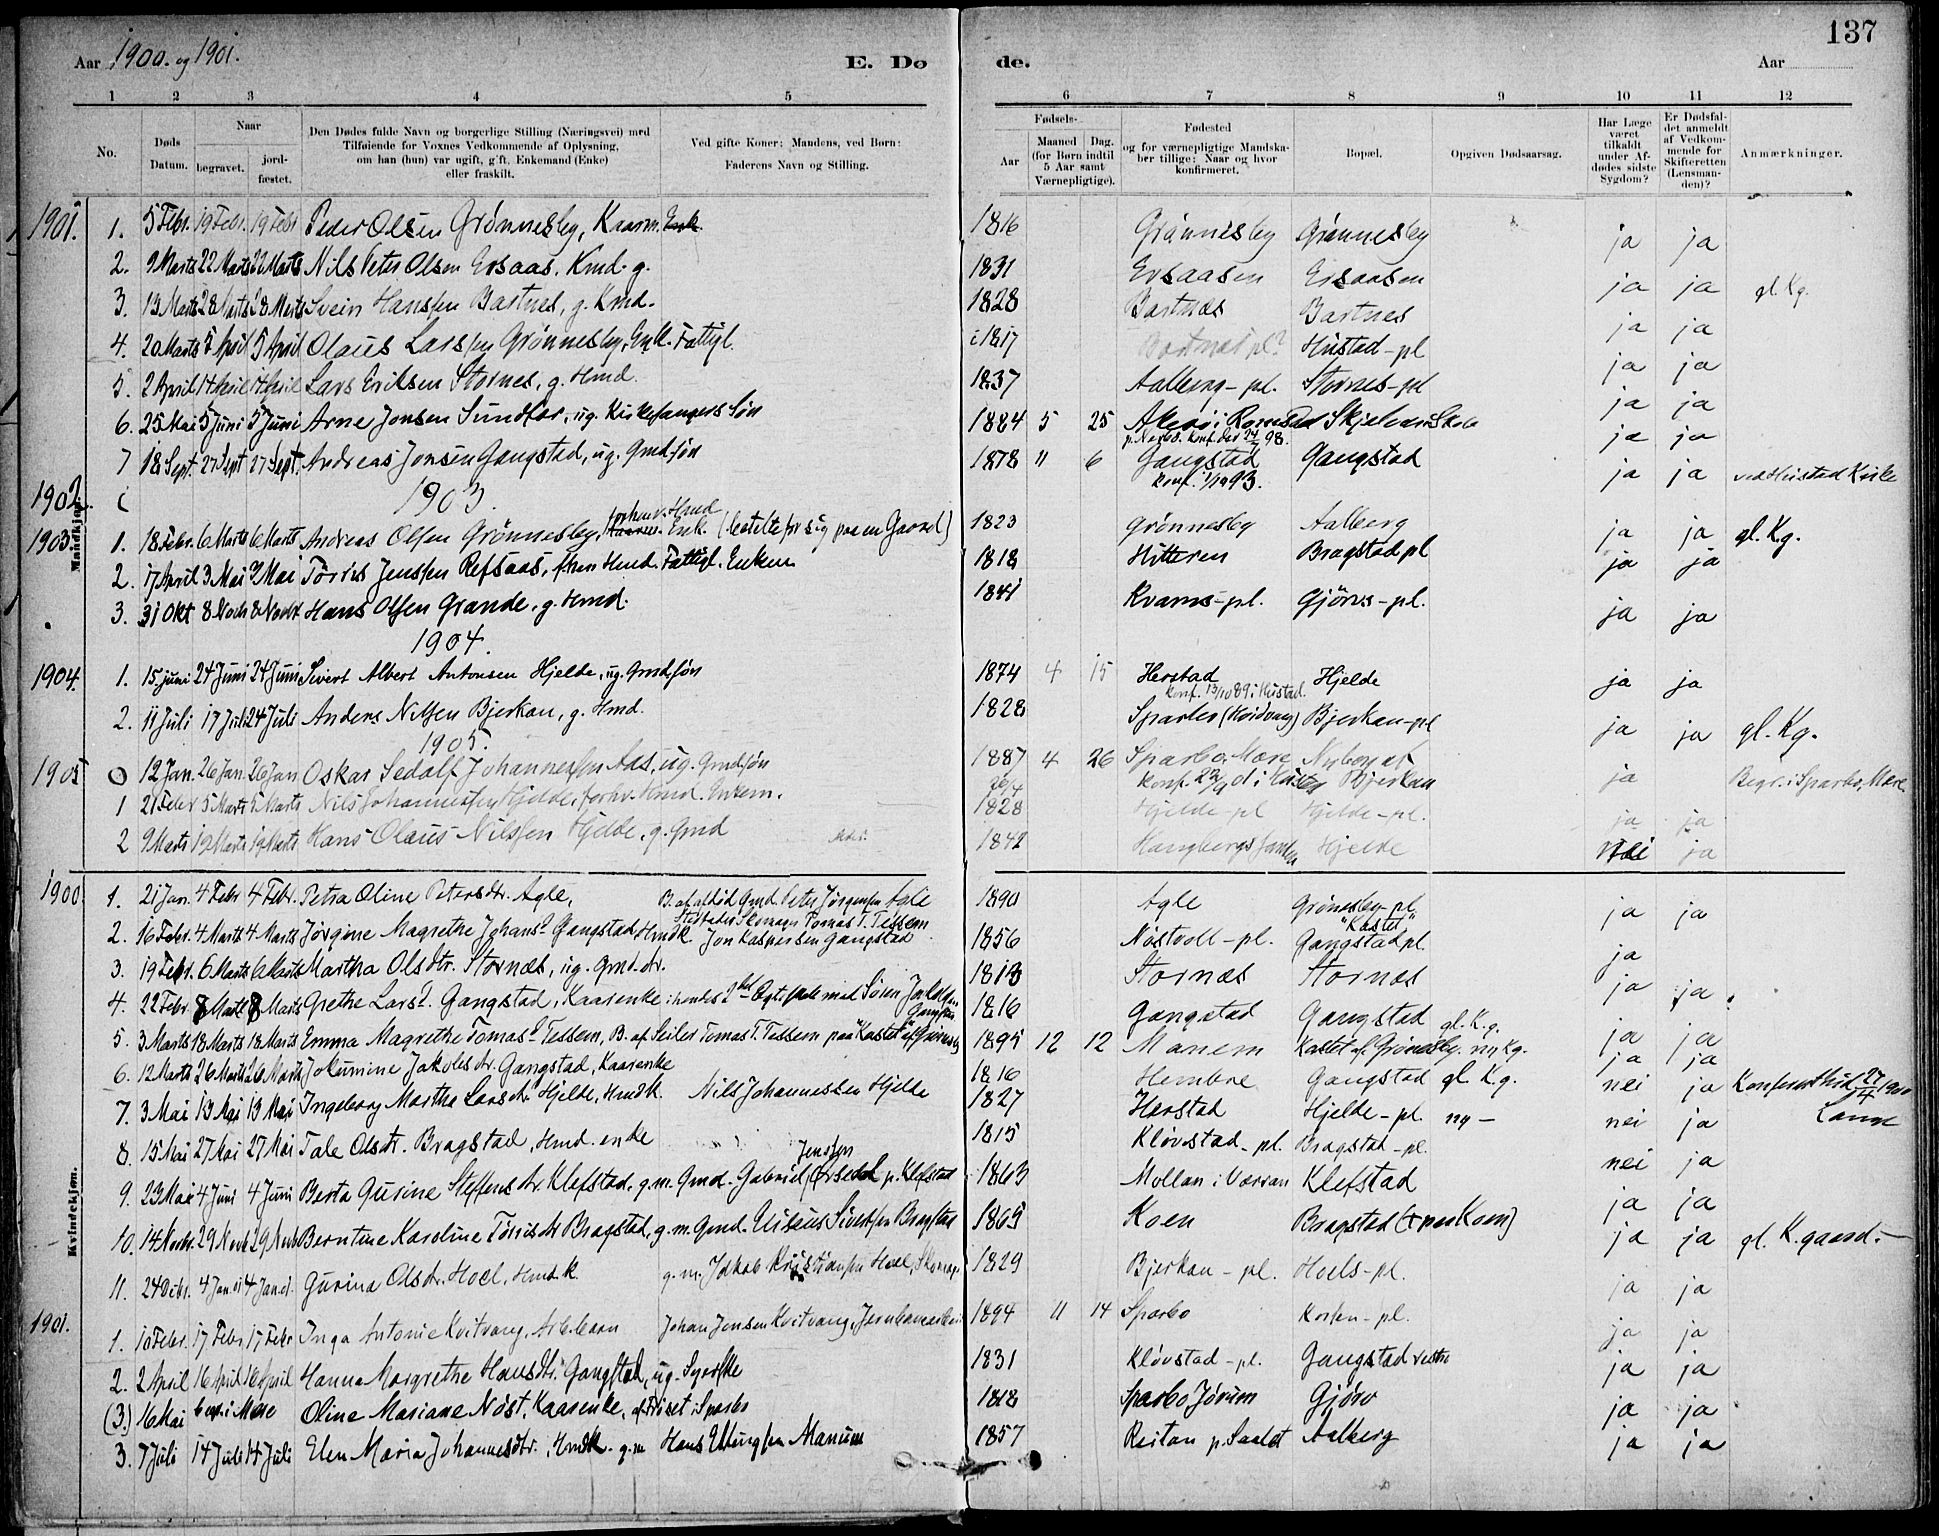 137
Aar 1900. og 1901. E. Dø de. Aar
1 2 3 4 5 6 7 8 9 10 11 12
No. Døds Datum. Naar begravet. jordfæstet. Den Dødes fulde Navn og borgerlige Stilling (Næringsvei) med Tilføiende for Voxnes Vedkommende af Oplysning, om han (hun) var ugift, gift, Enkemand (Enke) eller fraskilt. Ved gifte Koner: Mandens, ved Børn: Faderens Navn og Stilling. Fødsels- Aar Maaned Dag. (for Børn indtil 5 Aar samt Værnepligtige). Fødested og for værnepligtige Mandskaber tillige: Naar og hvor konfirmeret. Bopæl. Opgiven Dødsaarsag. Har Læge været tilkaldt under Afdødes sidste Sygdom? Er Dødsfaldet anmeldt af Vedkommende for Skifteretten (Lensmanden)? Anmærkninger.
Mandkjøn.
1901. 1. 5 Febr. 19 Febr. 19 Febr Peder Olsen Grønnesby, Kaarm. Enk. 1816 Grønnesby Grønnesby ja ja
2. 9 Marts 22 Marts 22 Marts Nils Peter Olsen Ersaas, Kmd. g. 1831 Ersaasen Ersaasen ja ja gl. Kg.
3. 13 Marts 28 Marts 28 Marts Svein Hanssen Bartnes, g. Kmd. 1828 Bartnæs Bartnes ja ja
4. 20 Marts 5 April 5 April Olaus Larssen Grønnesby, Enk. Fattigl. 1817 Bartnes pl? Hustad-pl ja ja
5. 2 April 14 April 14 April Lars Eriksen Stornes, g. Hmd. 1837 Aalberg-pl. Stornes-pl ja ja
6. 25 Mai 5 Juni 5 Juni Arne Jonsen Sundfær, ug. Kirkesangers Søn 1884 5 25 Akerø i Romsdal Skjelvan Skole ja ja
7 18 Sept. 27 Sept 27 Sept. Andreas Jonsen Gangstad, ug. Gmd.søn 1878 11 6 Gangstad Gangstad ja ja ved Hustad Kirke
konf. 1/10 93.
1902. 1903.
1903. 1. 18 Febr. 6 Marts 6 Marts Andreas Olsen Grønnesby, forhenv. Hmd Kaarm. Enk. 1823 Grønnesby Aalberg ja ja gl. Kg.
2. 17 April 3 Mai 3 Mai Tørris Jenssen Refsaas, f.hen Hmd. Fattigl. Enkem 1818 Hitteren Bragstad pl ja ja
3. 31 Okt 8 Novbr 8 Novbr Hans Olsen Grande, g. Hmd. 1841 Kvams-pl. Gjørvs-pl. ja ja
1904.
1904. 1. 15 juni 24 Juni 24 Juni Sivert Albert Antonsen Hjelde, ug. Gmdsøn 1874 4 15 Herstad Hjelde ja ja
konf. 13/10 89 i Hustad.
2. 11 Juli 17 Juli 24 Juli Anders Nilsen Bjerkan, g. Hmd. 1828 Sparbo Bjerkan-pl ja ja gl. Kg.
1905.
1905 0 12 Jan. 26 Jan. 26 Jan Oskar Sedolf Johannessen Aas, ug. Gmdsøn 1887 4 26 Sparbo, Mære Nyborg af Bjerkan ja Begr. i Sparbo, Mære
1 21 Febr 5 Marts 5 Marts Nils Johannessen Hjelde, forhv. Hmd. Enkem. 1828 Hjelde-pl Hjelde-pl. ja ja
2 9 Marts 19 Marts 19 Marts Hans Olaus Nilssen Hjelde, g. Gmd 1842 Hjelde nei ja
Kvindekjøn.
1900 1. 21 Jan. 4 Febr 4 Febr. Petra Oline Petersdtr. Agle, B. af afdød Gmd. Peter Jørgensen Agle 1890 Agle Grønesby-pl "Kastet" ja ja
Stedfader Skomager Tomas T. Tessem
2. 16 Febr. 4 Marts 4 Marts Jørgine Magrethe Johansd. Gangstad, Hmdk. Jon Kaspersen Gangstad 1856 Nøstvoll-pl. Gangstad pl. ja
3. 19 Febr. 6 Marts 6 Marts Martha Olsdtr. Stornæs, ug. Gmd.dr. 1813 Stornæs Stornes ja ja
4. 22 Febr 8 Marts 8 Marts Grethe Larsd. Gangstad, Kaarenke i hendes 2det Ægteskab med Søren Gangstad 1816 Gangstad Gangstad gl. K.g. ja ja
5. 3 Marts 18 Marts 18 Marts Emma Magrethe Tomasd. Tessem, B. af Seiler Tomas T. Tessem paa "Kastet" af Grønesby 1895 12 12 Manem Kastet af Grønesby. ny Kg. ja ja
6. 12 Marts 26 Marts 26 Marts Jokumine Jakobsdtr. Gangstad, Kaarenke 1816 Hembre Gangstad gl. K.g. nei ja
7. 3 Mai 13 Mai 13 Mai Ingeborg Martha Larsdtr. Hjelde, Hmdk. Nils Johannessen Hjelde 1827 Herstad Hjelde-pl. ny - nei ja
8. 15 Mai 27 Mai 27 Mai Tale Olsdtr. Bragstad, Hmd. enke 1815 Kløvstad-pl. Bragstad-pl. nei ja
9. 23 Mai 4 Juni 4 Juni Berta Gurine Steffensdtr. Klefstad, g.m. Gmd. Gabriel Jenssen Ørsedal p. Klefstad 1863 Mollan i Værran Klefstad ja ja
10. 14 Novbr. 29 Novb 29 Novb Berntine Karoline Tørrisdtr Bragstad, g.m. Gmd. Eliseus Sivertsen Bragstad 1865 Koen Bragstad ja ja gl. K.gaard.
11. 24 Decbr. 4 Jan. 01 4 Jan. 01. Gurina Olsdtr. Hoel, Hmd.k. g.m. Jakob Kristiansen Hoel, 1829 Bjerkan-pl. Hoels-pl. ja ja
1901. 1. 10 Febr. 17 Febr. 17 Febr Inga Antonie Kvitvang, Arb.barn Johan Jensen Kvitvang, 1894 11 14 Sparbo Korsen-pl. ja ja
2. 2 April 16 April 16 April Hanna Margrethe Hansdtr. Gangstad, ug. Syerske 1831 Kløvstad-pl. Gangstad vestre ja ja
(3.) 16 Mai begr. i Mære Oline Mariane Nøst, Kaarenke, i Sparbo 1818 Sparbo Jørum Gjørv ja ja
3. 7 Juli 14 Juli 14 Juli Elen Maria Johannesdtr., Hmdk. g.m Hans Ellingsen Manum 1857 Reitan p. Saalet Aalberg ja ja